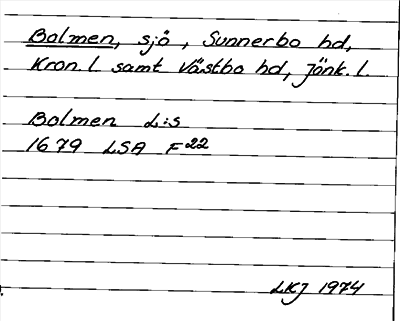 Bolmen, sjö, Sunnerbo hd,
Kron. l. samt Västbo hd, Jönk. l.
Bolmen L:s
1679 LSA F22
LKJ 1974